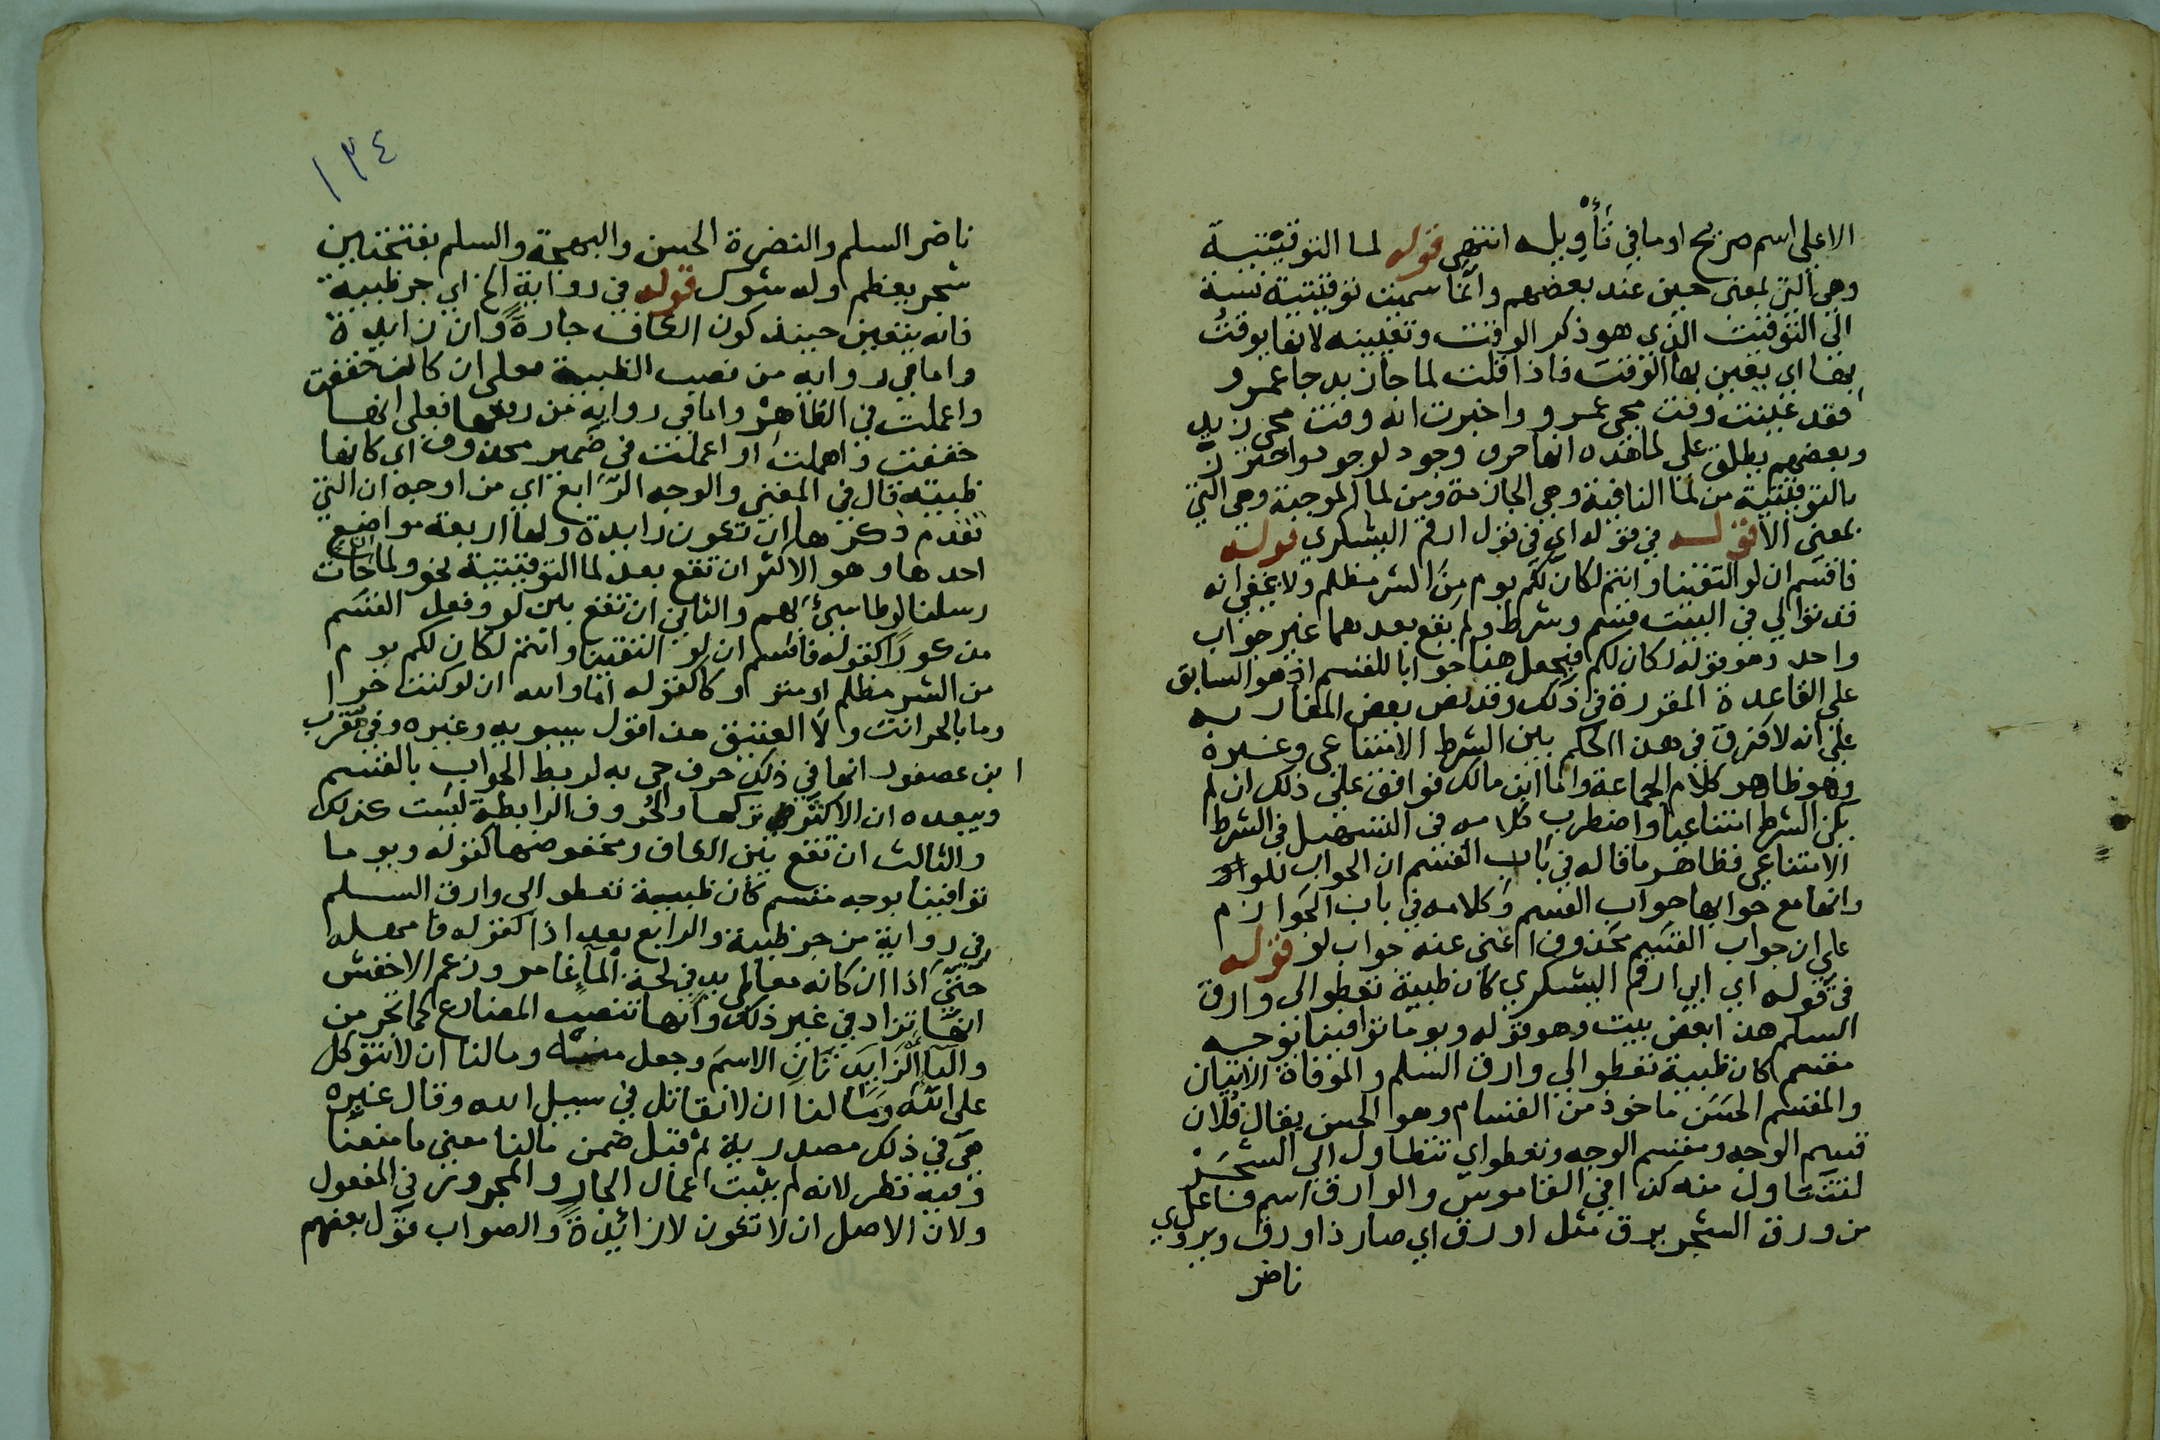 الاعلي اسم صريح او ما في تأويله انتهي قوله لما التوقيتية
وهي التي بمعني حين عند بعضهم وانما سميت توقيتية نسبة
الي التوقيت الذي هو ذكر الوقت وتعيينه لانها يوقت
بها اي يعين بها الوقت فاذا قلت لما جا زيد جا عمرو
فقد عينت وقت مجي عمرو واخبرت انه وقت مجي زيد
وبعضهم يطلق علي لما هذه انها حرف وجود لوجود واحترز
بالتوقيتية من لما النافية وهي الجازمة ومن لما الموجبة وهي التي
بمعني الا قوله في قوله اي في قول ارقم اليشكري قوله
فاقسم ان لو التقينا وانتم لكان لكم يوم من الشر مظلم ولا يخفي انه
قد توالي في البيت قسم وشرط ولم يقع بعدهما غير جواب
واحد وهو قوله لكان لكم فيجعل هنا جوابا للقسم اذ هو السابق
علي القاعدة المقررة في ذلك وقد نص بعض المغاربه
علي انه لا فرق في هذا الحكم بين الشرط الامتناعي وغيره
وهو ظاهر كلام الجماعة واما ابن مالك فوافق علي ذلك ان لم
يكن الشرط امتناعيا واضطرب كلامه في التسهيل في الشرط
الامتناعي فظاهر ما قاله في باب القسم ان الجواب للو
وانها مع جوابها جواب القسم وكلامه في باب الجوازم
علي ان جواب القسم محذوف اغني عنه جواب لو قوله
في قوله اي ابي ارقم اليشكري كان ظبية تعطو الي وارق
السلم هذا بعض بيت وهو قوله ويوما توافينا بوجه
مقسم كان ظبية تعطو الي وارق السلم والموفاة الاتيان
والمقسم الحسن ماخوذ من القسام وهو الحسن يقال فلان
قسيم الوجه ومقسم الوجه وتعطو اي تتطاول الي الشجر
لتتناول منه كذا في القاموس والوارق اسم فاعل
من ورق الشجر يرق مثل اورق اي صار ذا ورق ويروي
ناضر
١٣٤
ناضر السلم والنضرة الحسن والبهجة والسلم بفتحتين
شجر يعظم وله شوك قوله في رواية الخ اي جر ظبية
فانه يتعين حينئذ كون الكاف جارة وان زايدة
واما في رواية من نصب الظبية فعلي ان كان خففت
واعملت في الظاهر واما في رواية من رفعها فعلي انها
خففت واهملت او اعملت في ضمير محذوف اي كانها
ظبية قال في المغني والوجه الرابع اي من اوجه ان التي
تقدم ذكرها ان تكون زايدة ولها اربعة مواضع
احدها وهو الاكثر ان تقع بعد لما التوقيتية نحو ولما ان جات
رسلنا لوطا سيئ بهم والثاني ان تقع بين لو وفعل القسم
مذكورا كقوله فاقسم ان لو التقينا وانتم لكان لكم يوم
من الشر مظلم او متروكا كقوله اما والله ان لو كنت حرا
وما بالحر انت ولا العتيق هذا قول سيبويه وغيره وفي مقرب
ابن عصفور انها في ذلك حرف جي به لربط الجواب بالقسم
ويبعده ان الاكثر تركها والحروف الرابطة ليست كذلك
والثالث ان تقع بين الكاف ومخفوضها كقوله ويوما
توافينا بوجه مقسم كان ظبية تعطو الي وارق السلم
في رواية من جر ظبية والرابع بعد اذا كقوله فامهله
حتي اذا ان كانه معاطي يد في لجة الماء غامر وزعم الاخفش
انها تزاد في غير ذلك وانها تنصب المضارع كما تجر من
والباء الزايدتان الاسم وجعل منه وما لنا ان لا نتوكل
علي الله وما لنا ان لا نقاتل في سبيل الله وقال غيره
هي في ذلك مصدرية ثم قيل ضمن ما لنا معني ما منعنا
وفيه نظر لانه لم يثبت اعمال الجار والمجرور في المفعول
ولان الاصل ان لا تكون لا زائدة والصواب قول بعضهم